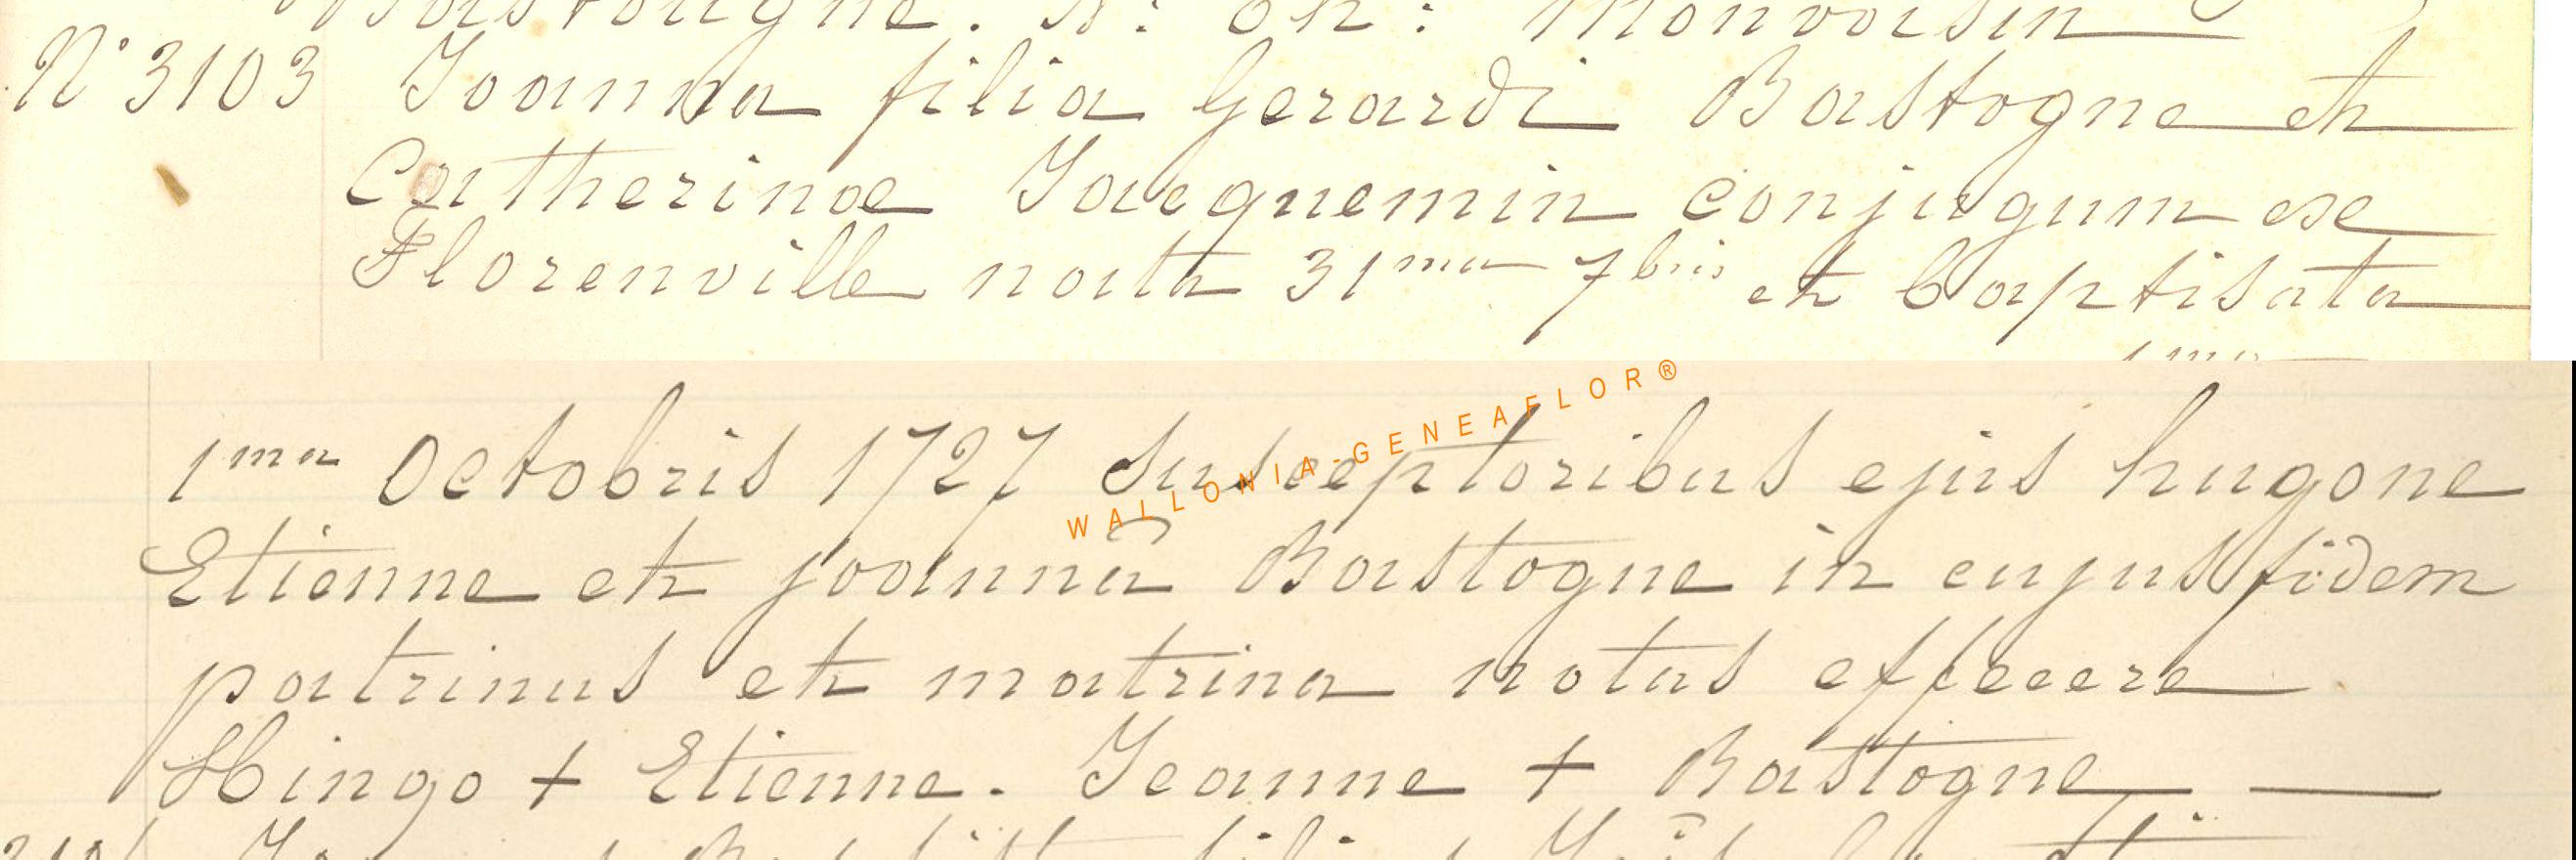 Bastougne. N: Oh: Monvoisin
N° 3103 Joanna filia Gerardi Bastogne et
Catherinæ Jacquemin conjugum ex
Florenville nata 31ma 7bris et baptisata
1ma Octobris 1727 Susceptoribus ejus hugone
WALLONIA-GENEAFLOR®
Etienne et joannâ Bastogne in cujus fidem
patrinus et matrina notas effecere
Hingo + Etienne. Jeanne + Bastogne —